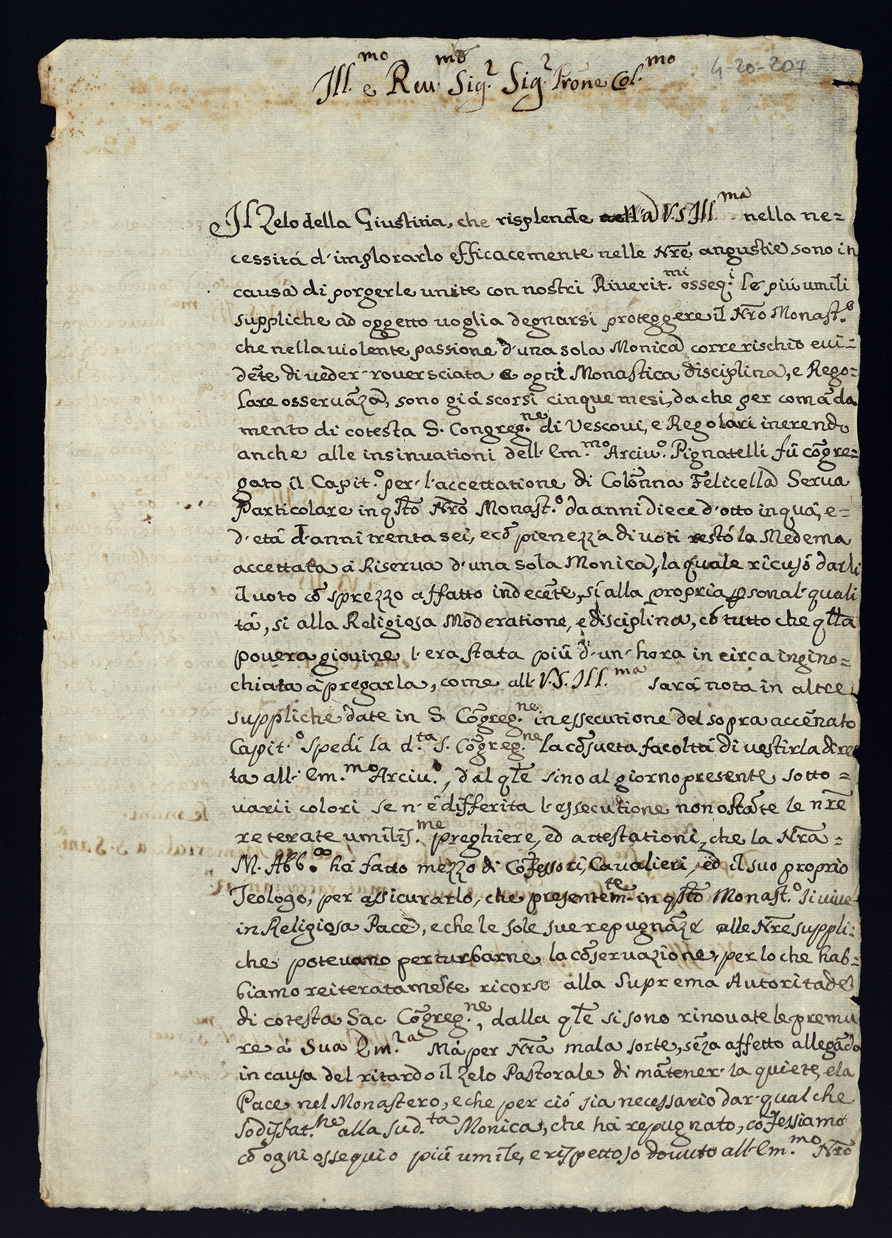 Ill.mo e Reu.mo Sig.r Sig.r Prone Col.mo
4-20-207
Il Zelo della Giustitia, che risplende a V.S.Ill.ma nella ne=
cessitá d'implorarlo efficacemente nelle Nrē angustie sono in
causa di porgerle unite con nostri Riverit.mi osseq.i le piú umili
suppliche ad oggetto uoglia degnarsi proteggere il Nrō Monast.o
che nella violente passione d'una sola Monica corre rischio eui=
dēte di ueder rouersciata ogni Monastica disciplina, e Rego=
lare osseruāza, sono giá scorsi cinque mesi, da che per comāda
mento di cotesta S. Congreg.ne di Vescoui, e Regolari inerendo
anche alle insinuationi dell'Em.mo Arciu.o Pignatelli fú cōgre=
gato il Capit.o per l'accettatione di Colonna Felicella Serua
Particolare in qsto Nrō Monast.o da anni diece d'otto in quá, e=
d'etá d'anni trenta sei, e cō pienezza di uoti restó la Medema
accettata á Riserua d'una sola Monica, la quale ricusó darli
il uoto cō sprezzo affatto indecēte, sí alla propria psonal qualí
tá, si alla Religiosa Moderatione, e disciplina, cō tutto che qlla
pouera giouine l'era stata piú d'un'hora in circa ingino=
chiata á pregarla, come all V.S.Ill.ma sará nota in altre
suppliche date in S. Cōgreg.ne in essecutione del sopra accēnato
Capit.o spedí la d.ta S. Cōgreg.ne la cōsueta facoltá di uestirla dire
ta all'Em.mo Arciu.o, dal qlē sino al giorno presente sotto=
uarii colori se n'é differita l'essecutione non ostāte le nrē
reterate umilis.me preghiere, ed attestationi, che la Nrā=
M. Abb.a há fatto mezzo di Cōfessori, Caualieri, ed il suo proprio
Teologo, per assicurarlo, che presentem.te in qsto Monast.o si uiue
in Religiosa Pace, e che le sole sue repugnāze alle Nrē suppli=
che poteuano perturbarne la cōseruazione, per lo che hab=
biamo reiteratamēte ricorso alla Suprema Autoritade
di cotesta Sac. Cōgreg.ne, dalla qlē si sono rinouate le premu
re á Sua Em.za Má per Nrā mala sorte, sēza affetto allegādo
in causa del ritardo il Zelo Pastorale di mātener la quiete, e la
Pace nel Monastero, e che per ció sia necessario dar qualche
sodisfat.ne alla sud.ta Monica, che há repugnato, cōfessiamo
cō ogni ossequio piú umile, e rispettoso douuto all'Em.mo Nrō